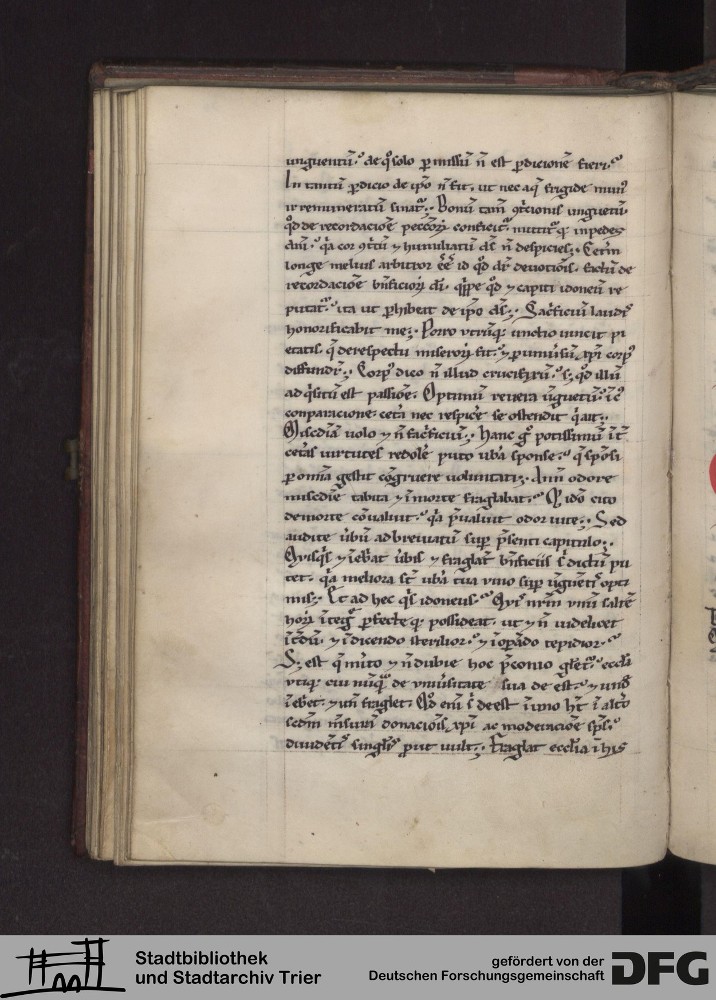 unguentū. de q̊ solo ꝑmissū n̄ est ꝑdicionē fieri.
In tantū ꝑdicio de ip̄o n̄ fit. ut nec aq̄ frigide mun᷒
irremuneratū sinat᷑. Bonū tam̄ ꝯt̄cionis unguētū.
q̊d de recordacioē peccōꝝ conficit᷑. mittit᷑ q; in pedes
dn̄i. q̄a cor ꝯt̄tū ⁊ humiliatū ds̄ n̄ despicies. Cetm̄
longe melius arbitror ēē id q̊d dr̄ deuotiōis. factū de
recordacioē bn̄ficioꝝ di. q̄ppe q̊d ⁊ capiti idoneū re
putat᷑. ita ut ꝑhibeat de ip̄o ds̄. Sac̄ficiū laudis
honorificabit me. Porro utrūq; unctio uincit pi
etatis. q̄ de respectu miseroꝝ fit. ⁊ ꝑ uniūsū xp̄i corp᷒
diffundit᷑. Corp᷒ dico n̄ illud crucifixū. s; q̊d illi᷒
adq̄situ est passiōe. Optimū reuera ūguetū. ī c᷒
conparacione cet̄a nec respic̄e se ostendit q̄ ait.
Misc̄diā uolo ⁊ n̄ sac̄ficiū. Hanc g̊ potissimū īt̄
cet̄as uirtutes redole᷑ puto ub̄a sponse. q̄ sp̄osi
ꝑ omīa gestit cōgruere uoluntati. Ann̄ odore
misc̄die tabita ⁊ ī morte fraglabat. Et idō cito
de morte cōualuit. q̄a p̄ualuit odor uite. Sed
audite ūbū adbreuiatū sup̄ p̄senti capitulo.
Quisq̄s ⁊ īeb̄at ūbis ⁊ fraglat bn̄ficiis s᷒ dictū pu
tet. q̄a meliora st̄ ub̄a tua uino sup̄ ūguētis opti
mis. Et ad hec q̄s idoneus. Quis nr̄m unū saltē
hoꝝ īteg᷒ ꝑfecte q; possideat. ut ⁊ n̄ uidelicet
īt̄dū. ⁊ ī dicendo sterilior. ⁊ ī opādo tepidior.
S; est q̄ mīto ⁊ n̄ dubie hoc p̄conio gl̄et᷑. eccl̄ia
utiq; cui nūq̄ de uniuersitate sua deest. ⁊ unď
īebr̄et. ⁊ un̄ fraglet. Q̊d eni s᷒ deest ī uno ht̄ ī alt̄o
sc̄dm m̄surā donaciōis xp̄i ac moderacioē sp̄s.
diuidētis singl̄is ꝓut uult. Fraglat eccl̄ia ī his
Stadtbibliothek
und Stadtarchiv Trier
gefördert von der
Deutschen Forschungsgemeinschaft
DFG